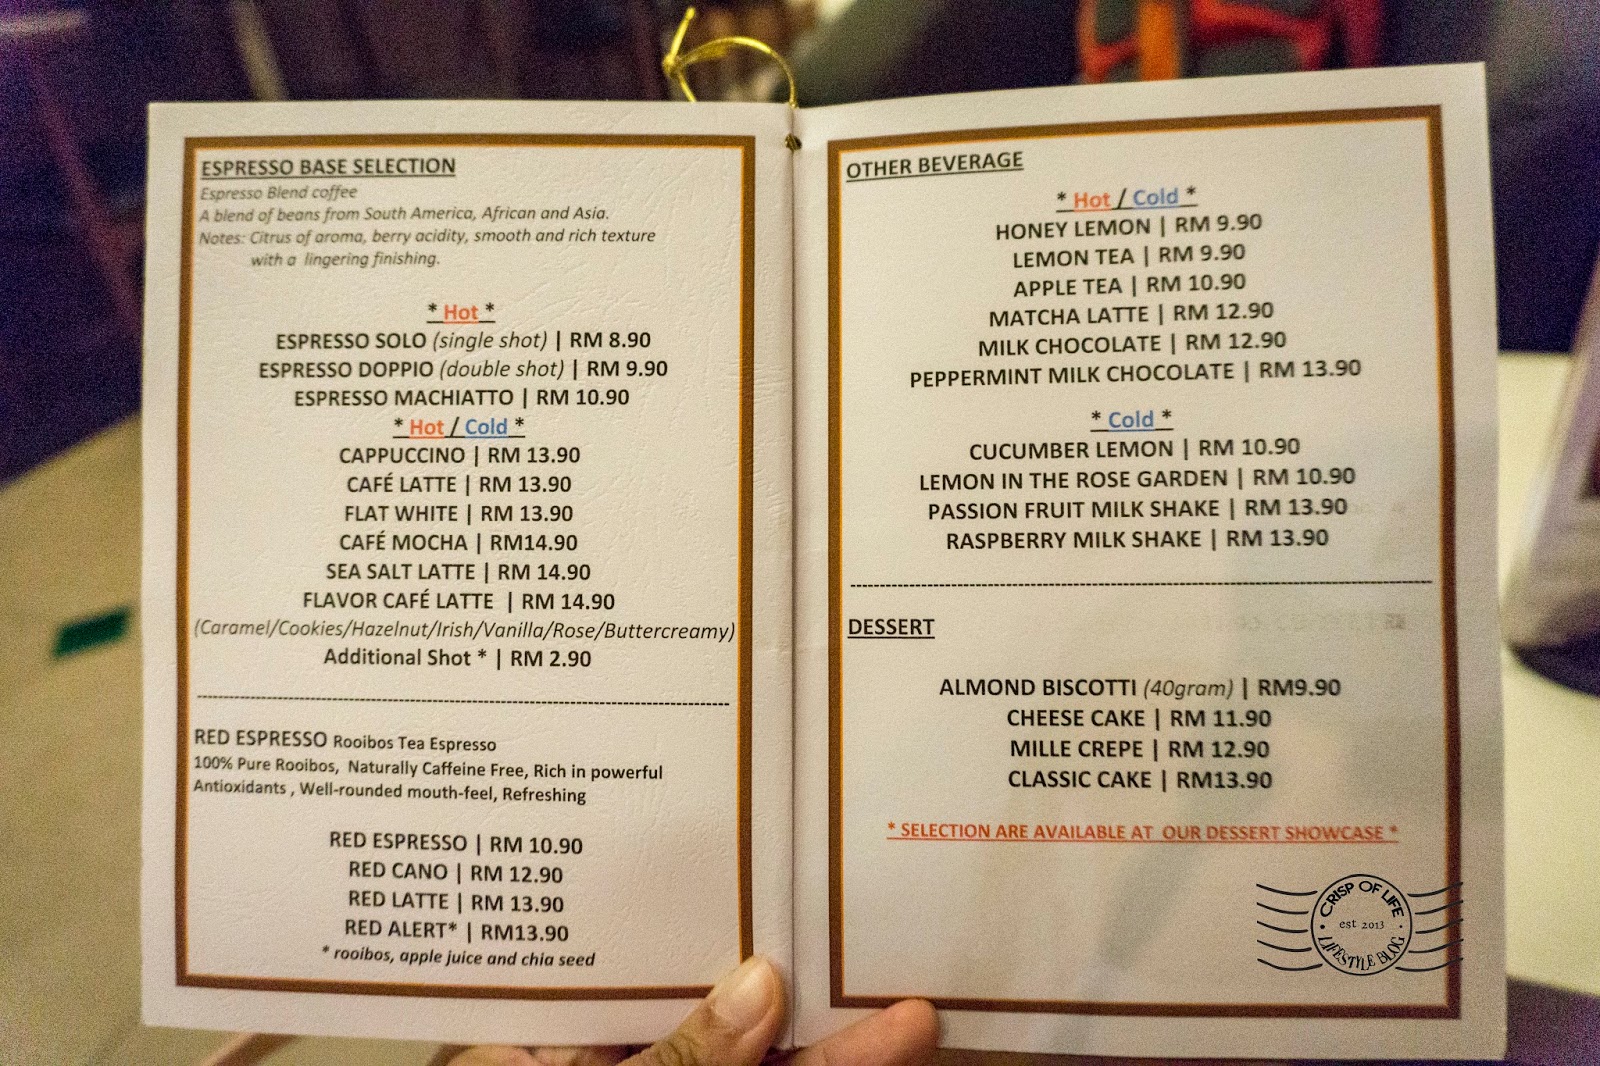 ESPRESSO BASE SELECTION
Espresso Blend coffee
A blend of beans from South America, African and Asia.
Notes: Citrus of aroma, berry acidity, smooth and rich texture
with a lingering finishing.
* Hot *
ESPRESSO SOLO (single shot) | RM 8.90
ESPRESSO DOPPIO (double shot) | RM 9.90
ESPRESSO MACHIATTO | RM 10.90
* Hot / Cold *
CAPPUCCINO | RM 13.90
CAFÉ LATTE | RM 13.90
FLAT WHITE | RM 13.90
CAFÉ MOCHA | RM14.90
SEA SALT LATTE | RM 14.90
FLAVOR CAFÉ LATTE | RM 14.90
(Caramel/Cookies/Hazelnut/Irish/Vanilla/Rose/Buttercreamy)
Additional Shot * | RM 2.90
RED ESPRESSO Rooibos Tea Espresso
100% Pure Rooibos, Naturally Caffeine Free, Rich in powerful
Antioxidants , Well-rounded mouth-feel, Refreshing
RED ESPRESSO | RM 10.90
RED CANO | RM 12.90
RED LATTE | RM 13.90
RED ALERT* | RM13.90
* rooibos, apple juice and chia seed
OTHER BEVERAGE
* Hot / Cold *
HONEY LEMON | RM 9.90
LEMON TEA | RM 9.90
APPLE TEA | RM 10.90
MATCHA LATTE | RM 12.90
MILK CHOCOLATE | RM 12.90
PEPPERMINT MILK CHOCOLATE | RM 13.90
* Cold *
CUCUMBER LEMON | RM 10.90
LEMON IN THE ROSE GARDEN | RM 10.90
PASSION FRUIT MILK SHAKE | RM 13.90
RASPBERRY MILK SHAKE | RM 13.90
DESSERT
ALMOND BISCOTTI (40gram) | RM9.90
CHEESE CAKE | RM 11.90
MILLE CREPE | RM 12.90
CLASSIC CAKE | RM13.90
* SELECTION ARE AVAILABLE AT OUR DESSERT SHOWCASE *
CRISP OF LIFE
est 2013
LIFESTYLE BLOG